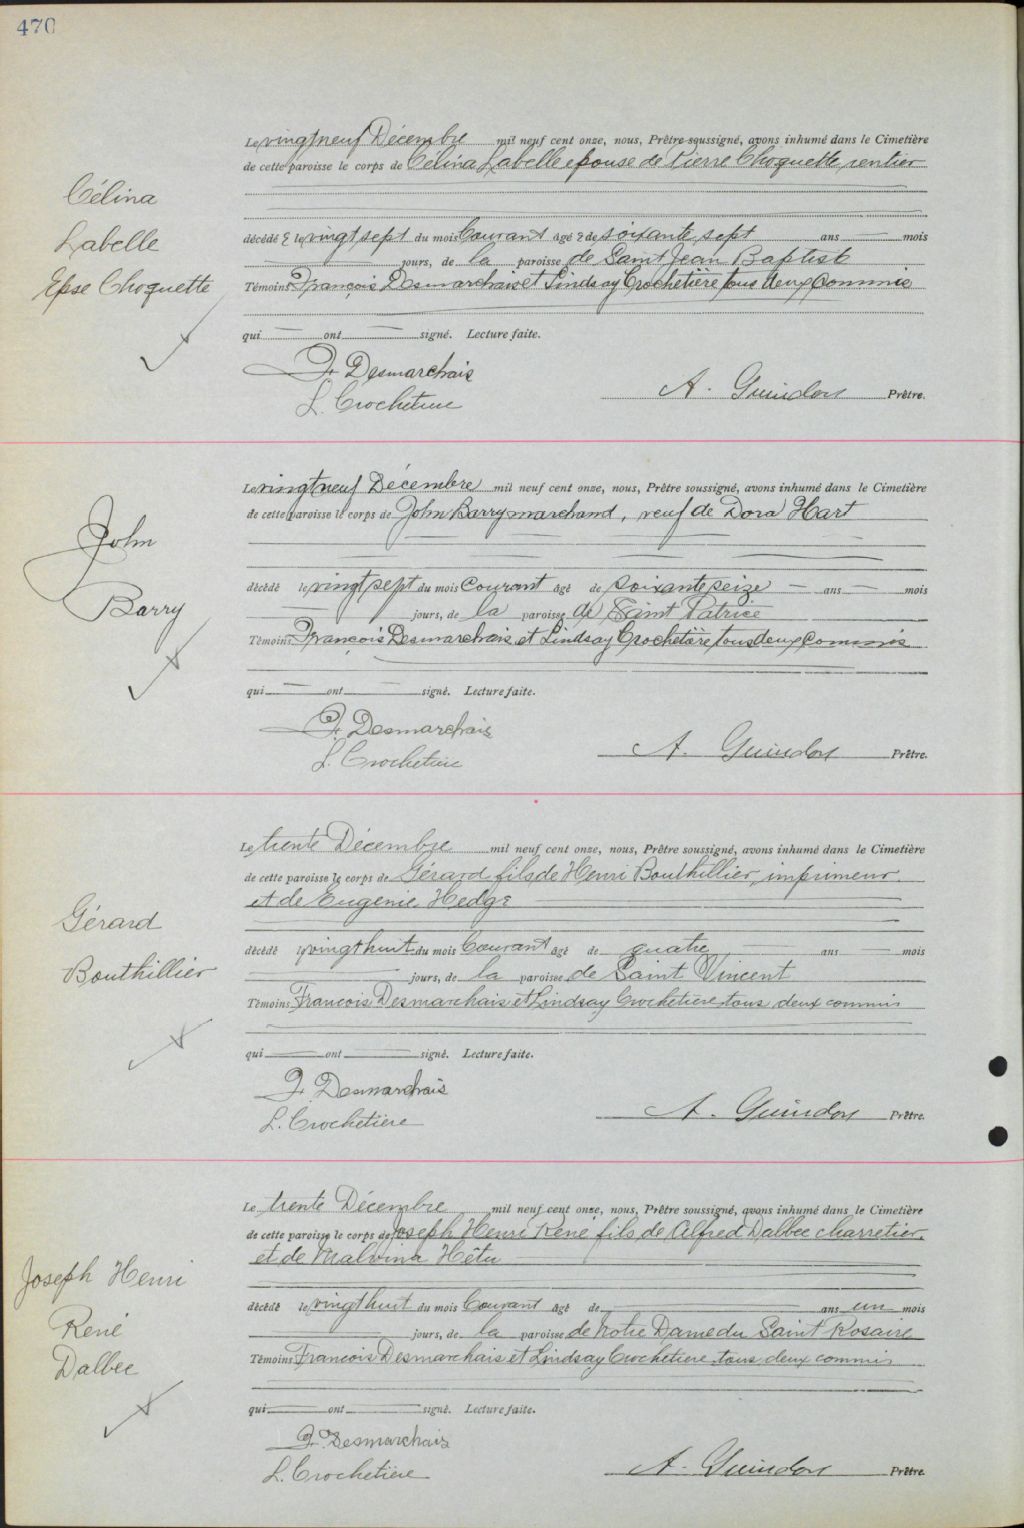 470
Célina
Labelle
Epse Choquette
Le vingt neuf Décembre mil neuf cent onze, nous, Prêtre soussigné, avons inhumé dans le Cimetière
de cette paroisse le corps de Célina Labelle epouse de Pierre Choquette, rentier
décédé e le vingt sept du mois Courant âgé e de soixante sept ans mois
jours, de la paroisse de Saint Jean Baptiste
Témoins François Desmarchais et Lindsay Crochetière tous deux Commis
qui ont signé. Lecture faite.
F. Desmarchais
L. Crochetière
A. Guindon Prêtre.
John
Barry
Le vingt neuf Décembre mil neuf cent onze, nous, Prêtre soussigné, avons inhumé dans le Cimetière
de cette paroisse le corps de John Barry marchand, veuf de Dora Hart
décédé le vingt sept du mois Courant âgé de soixante seize ans mois
jours, de la paroisse de Saint Patrice
Témoins François Desmarchais et Lindsay Crochetière tous deux Commis
qui ont signé. Lecture faite.
F. Desmarchais
L. Crochetière
A. Guindon Prêtre.
Gérard
Bouthillier
Le trente Décembre mil neuf cent onze, nous, Prêtre soussigné, avons inhumé dans le Cimetière
de cette paroisse le corps de Gérard fils de Henri Bouthillier, imprimeur
et de Eugénie Hedge
décédé le vingt huit du mois Courant âgé de quatre ans mois
jours, de la paroisse de Saint Vincent
Témoins François Desmarchais et Lindsay Crochetière tous deux commis
qui ont signé. Lecture faite.
F. Desmarchais
L. Crochetière
A. Guindon Prêtre.
Joseph Henri
René
Dalbec
Le trente Décembre mil neuf cent onze, nous, Prêtre soussigné, avons inhumé dans le Cimetière
de cette paroisse le corps de Joseph Henri René fils de Alfred Dalbec charretier
et de Malvina Hêtu
décédé le vingt huit du mois Courant âgé de ans un mois
jours, de la paroisse de Notre Dame du Saint Rosaire
Témoins François Desmarchais et Lindsay Crochetière tous deux commis
qui ont signé. Lecture faite.
F. Desmarchais
L. Crochetière
A. Guindon Prêtre.